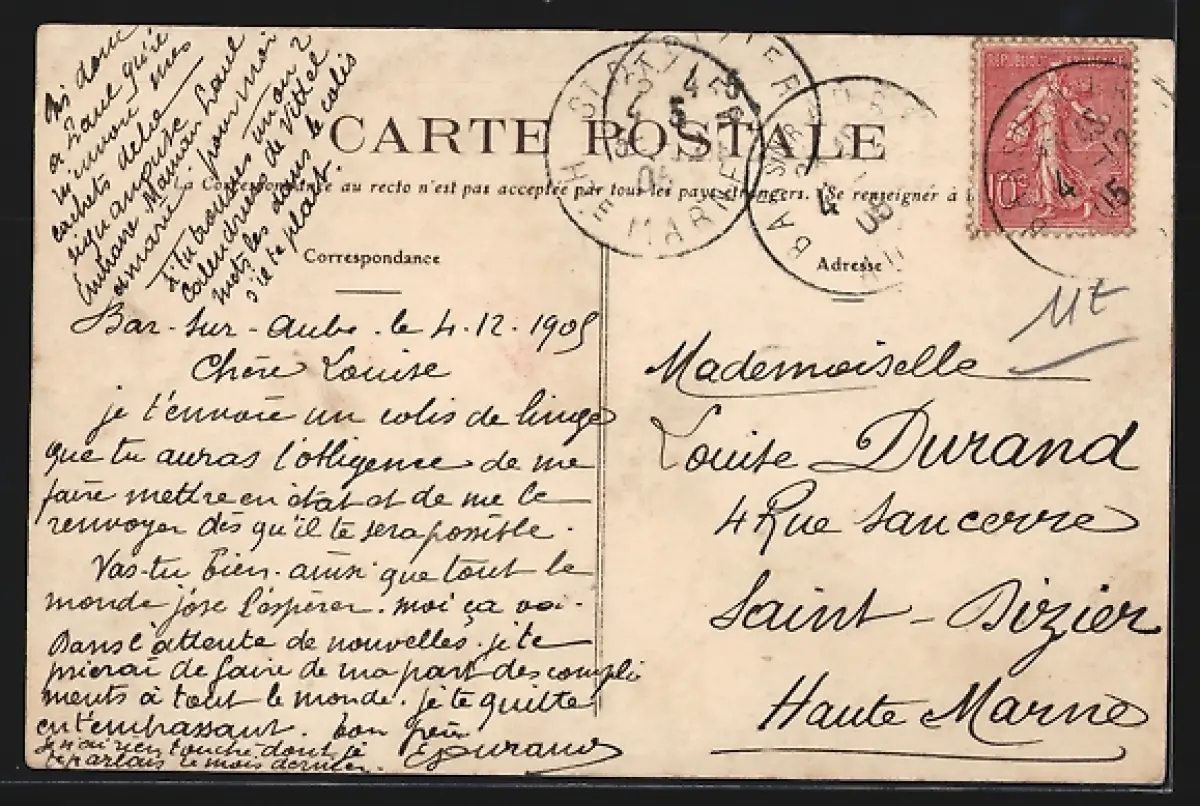 Dis donc
a Paul qu'il
m'envoie mes
cachets de
Embrasse Maman Paul
et marie pour moi
Si tu trouves un ou 2
calendriers de Vittel
mets les dans le colis
s'il te plait.
CARTE POSTALE
La Correspondance au recto n'est pas acceptée par tous les pays étrangers. (Se renseigner à la
Correspondance
Bar-sur-Aube le 4.12.1905
Chère Louise
je t'envoie un colis de linge
que tu auras l'obligence de me
faire mettre en état et de me le
renvoyer dès qu'il te sera possible.
Vas-tu bien ainsi que tout le
monde j'ose l'espérer. moi ça va.
Dans l'attente de nouvelles je te
prierai de faire de ma part des compli
ments à tout le monde. je te quitte
en t'embrassant. ton frère
EDurand
je n'ai rien touché dont je
te parlais le mois dernier.
Adresse
Mademoiselle
Louise Durand
4 Rue Sancerre
Saint-Dizier
Haute Marne
REPUBLIQUE FRANÇAISE
10c
ST DIZIER
Hte MARNE
4
05
BAR-SUR-AUBE
4
05
BAR-SUR-AUBE
4 -12
05